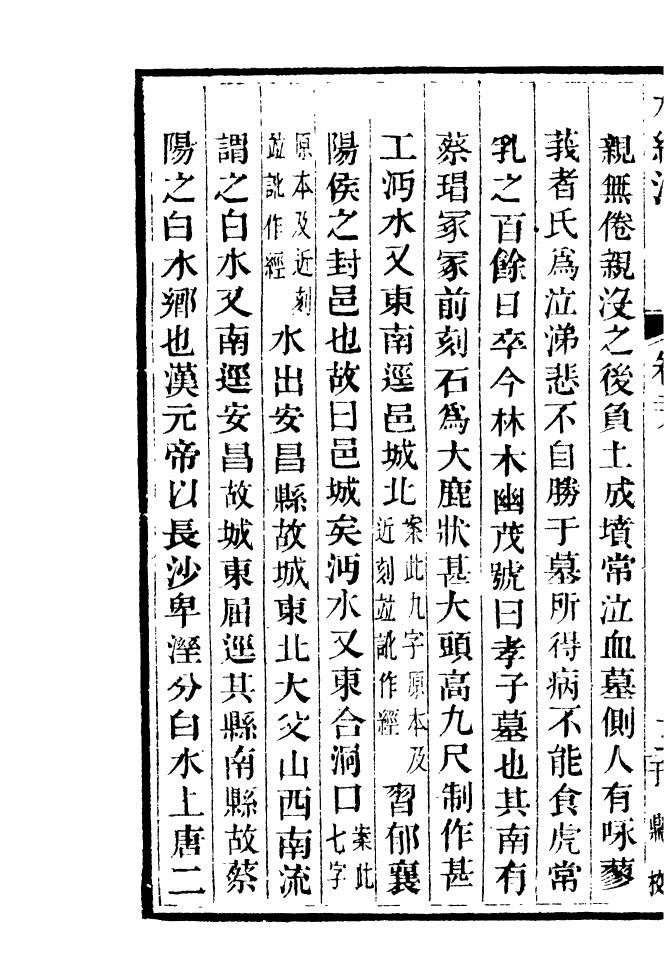 親無倦親沒之後負土成墳常泣血墓側人有咏蓼
莪者氏爲泣涕悲不自勝于墓所得病不能食虎常
乳之百餘日卒今林木幽茂號曰孝子墓也其南有
蔡瑁冢冢前刻石爲大鹿狀甚大頭高九尺制作甚
工沔水又東南逕邑城北案此九字原本及近刻竝訛作經習郁襄
陽侯之封邑也故曰邑城矣沔水又東合洞口案此七字
原本及近刻竝訛作經水出安昌縣故城東北大父山西南流
謂之白水又南逕安昌故城東屈逕其縣南縣故蔡
陽之白水鄉也漢元帝以長沙卑溼分白水上唐二